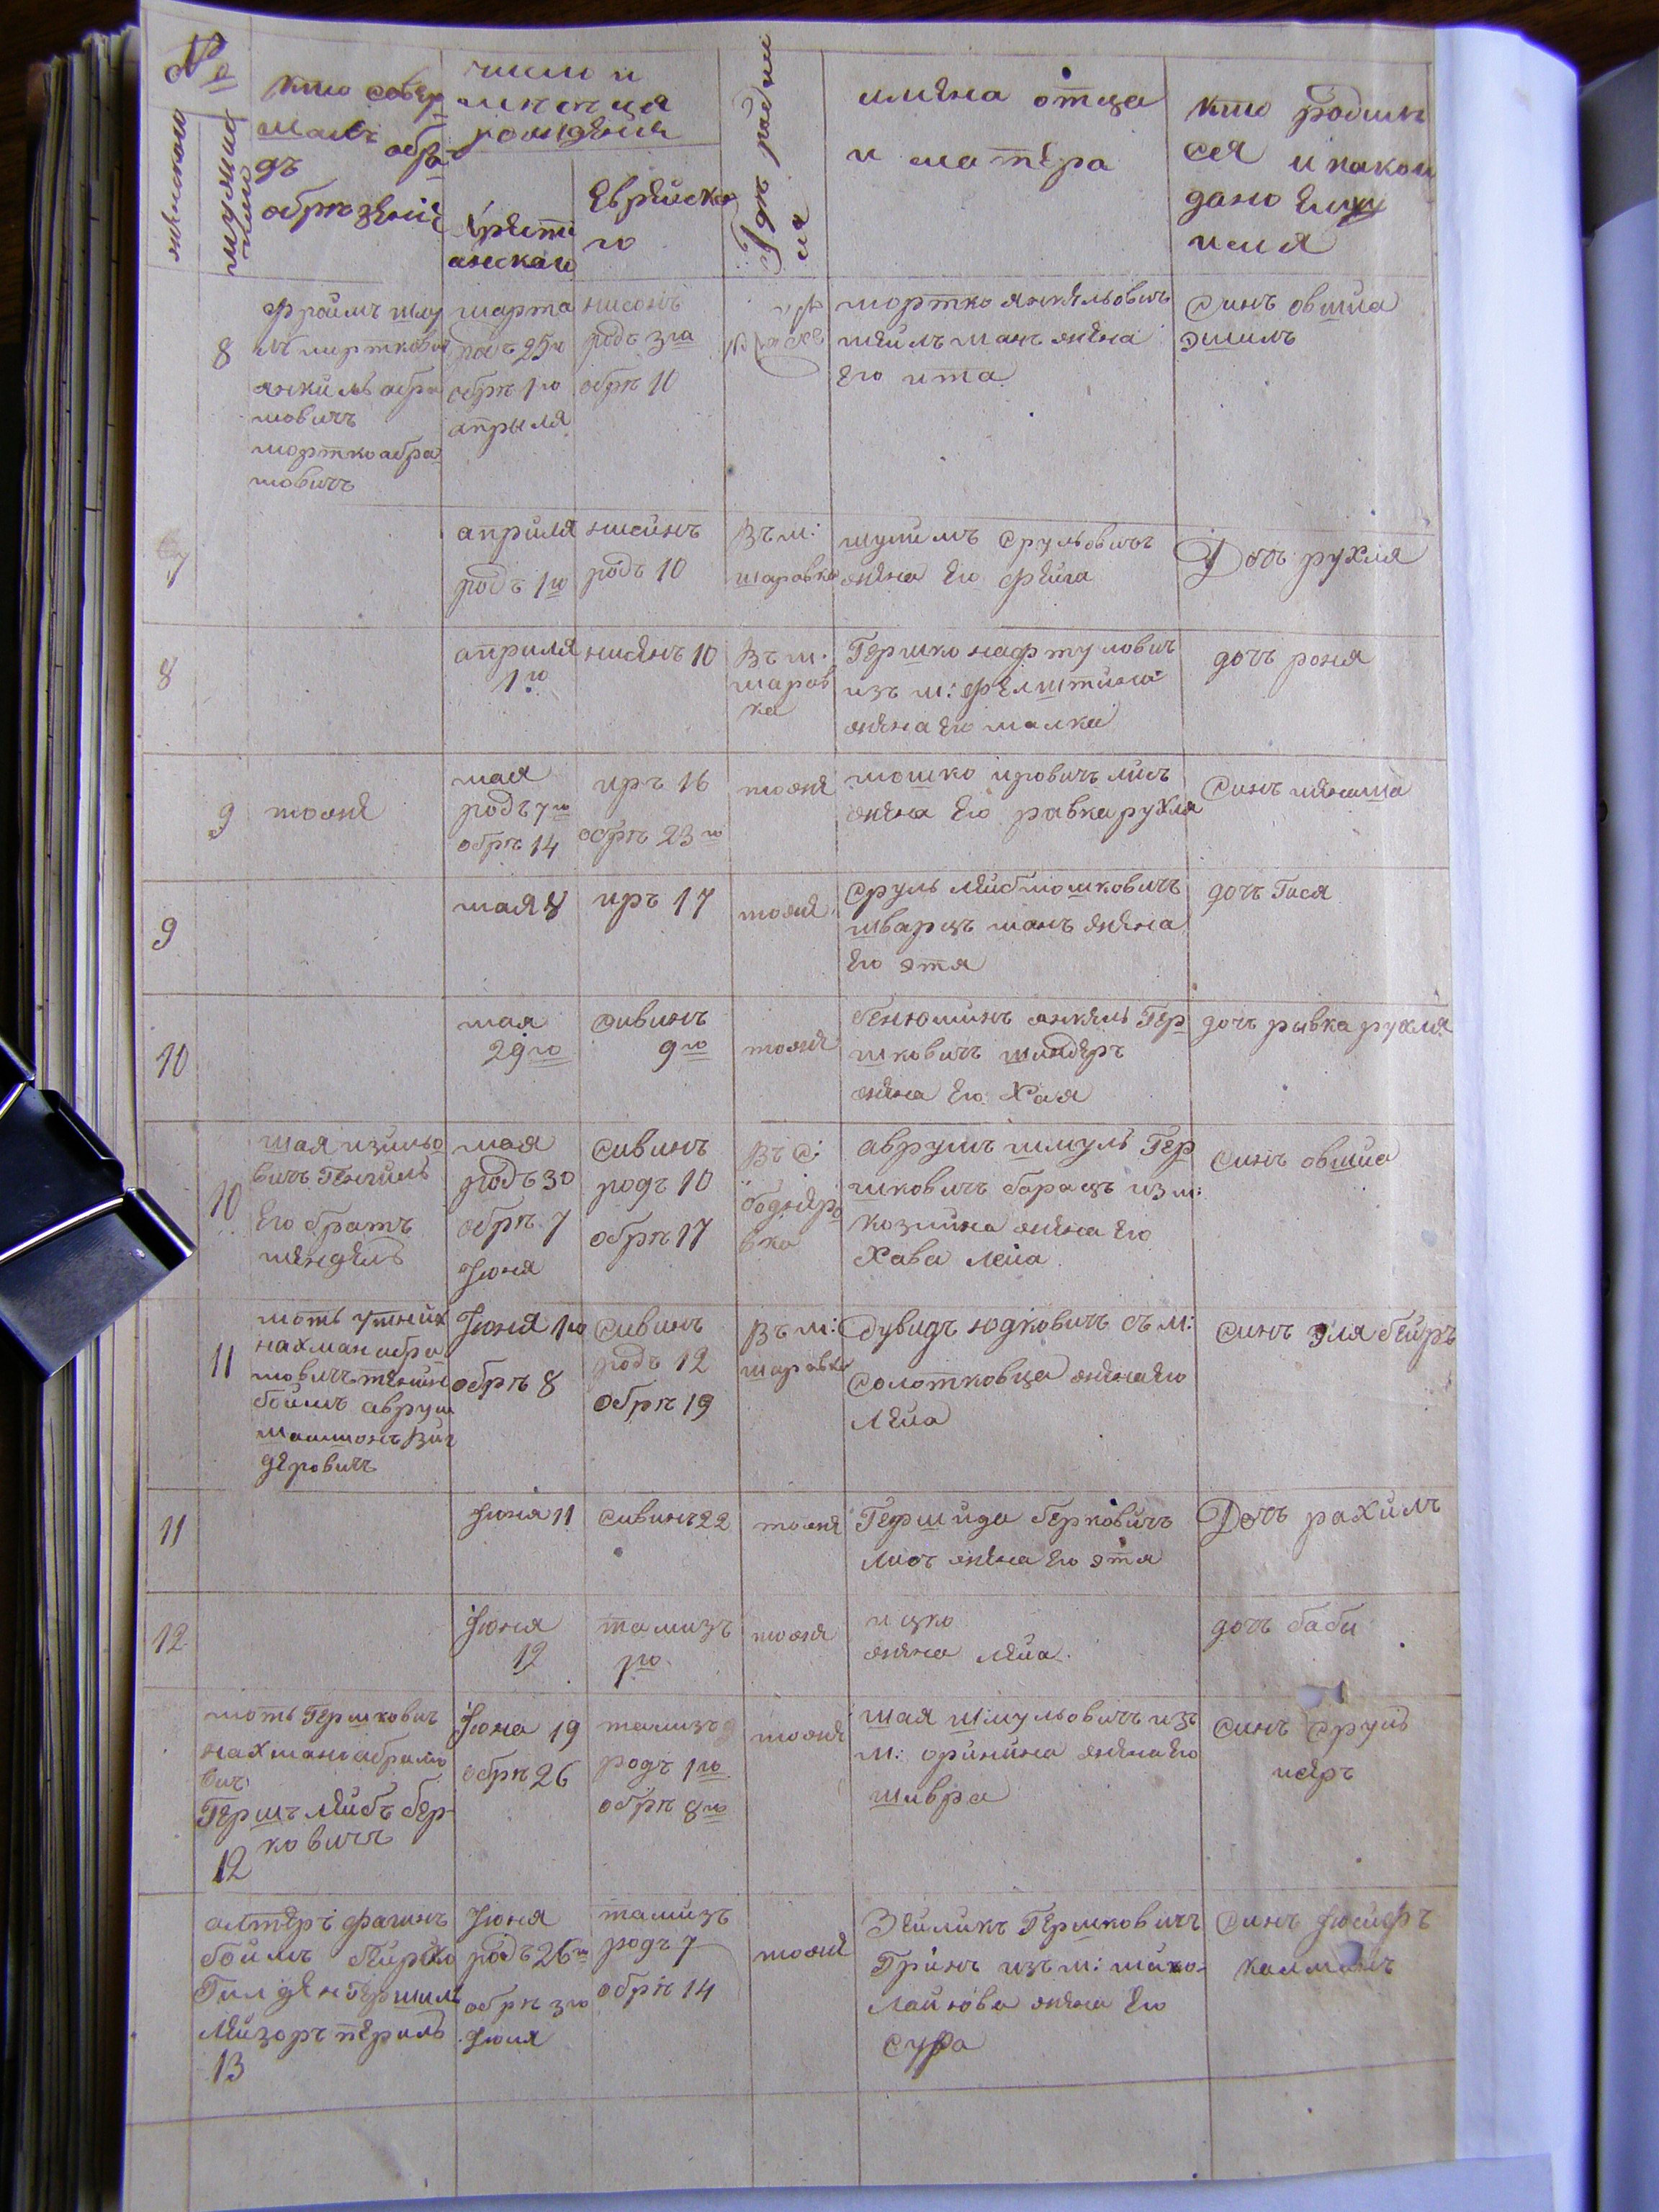 №
женскаго
мужеска
кто совер
шалъ обря
дъ
обрезений
число и
месяца
рождения
христи
анскаго
Еврейска
го
Где родил
ся
имена отца
и матера
кто родил
ся и какои
дано Ему
имя
8
Фроимъ шлу
янкиль абра
мовичъ
мортко абра
мовичъ
марта
родъ 25го
обре 1го
апрыля
нисонъ
родъ 3га
обре 10
мортко янкельовичъ
жена
Его ита
Синъ овшиа
эшилъ
7
априля
родъ 1го
нисинъ
родъ 10
Въ м:
шаровка
шулимъ Срульовичъ
жена Его Фейга
Дочъ рухля
8
априля
1го
нисянъ 10
Въ м:
шаров
ка
Гершко нафтуловичъ
изъ м: Фелштина
жена Его малка
дочъ роня
9
тоже
мая
родъ 7го
обре 14
иръ 16
обре 23го
тоже
мошко ировичъ лисъ
жена Его равка рухля
Синъ менаша
9
мая 8
иръ 17
тоже
Сруль Лейбмошковичъ
шварцъ манъ жена
Его этя
дочъ Гися
10
мая
29го
Сивинъ
9го
тоже
бенюминъ янкель Гер
шковичъ шнидеръ
жена Его Хая
дочъ рывка рухля
10
шая изильо
вичъ Генчиль
Его братъ
мендель
мая
родъ 30
обре 7
Июня
Сивинъ
родъ 10
обре 17
Въ с:
боднаро
вка
аврумъ шмуль Гер
шковичъ барацъ из м:
козлина жена Его
Хава Лейа
Синъ овшиа
11
нахман абра
мовичъ тенин
боимъ аврум
вич
деровичъ
Июня 1го
обре 8
Сивинъ
родъ 12
обре 19
Въ м:
шаровка
Дувидъ юдковичъ съ м:
Солотковца жена Его
Лейа
Синъ эля бейръ
11
Июня 11
Сивинъ 22
тоже
Герш йда берковичъ
лисъ жена Его этя
Дочъ рахилъ
12
Июня
12
тамизъ
1го
тоже
ицко
жена лейа.
дочъ бабы
12
моть Гершковичъ
нахманъ абрамо
вичъ
Гершъ лейбъ бер
ковичъ
Июна 19
обре 26
тамизъ
родъ 1го
обре 8го
тоже
шая шмульовичъ изъ
м: оринина жена Его
шивра
Синъ Сруль
меръ
13
алтеръ фагинъ
боимъ бейрко
Лейзоръ перилъ
Июня
родъ 26го
обре 3го
Июля
тамизъ
родъ 7
обре 14
тоже
Зейликъ Гершковичъ
Гринъ изъ м: мико
лайова жена Его
Сура
Синъ Июсифъ
калманъ